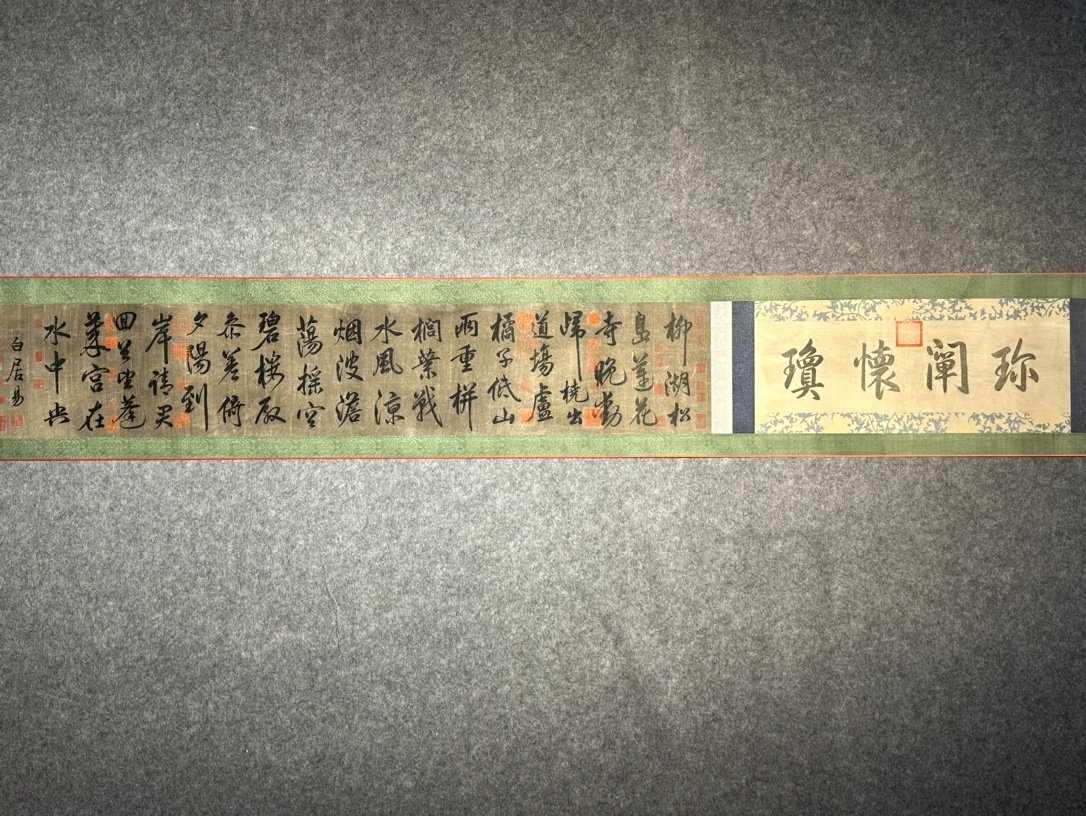 珎闡懷瓊
柳湖松
島蓮花
寺晚動
歸橈出
道場盧
橘子低山
雨重栟
櫚葉戰
水風涼
烟波澹
蕩搖空
碧樓殿
參差倚
夕陽到
岸請君
回首望蓬
萊宮在
水中央
白居易